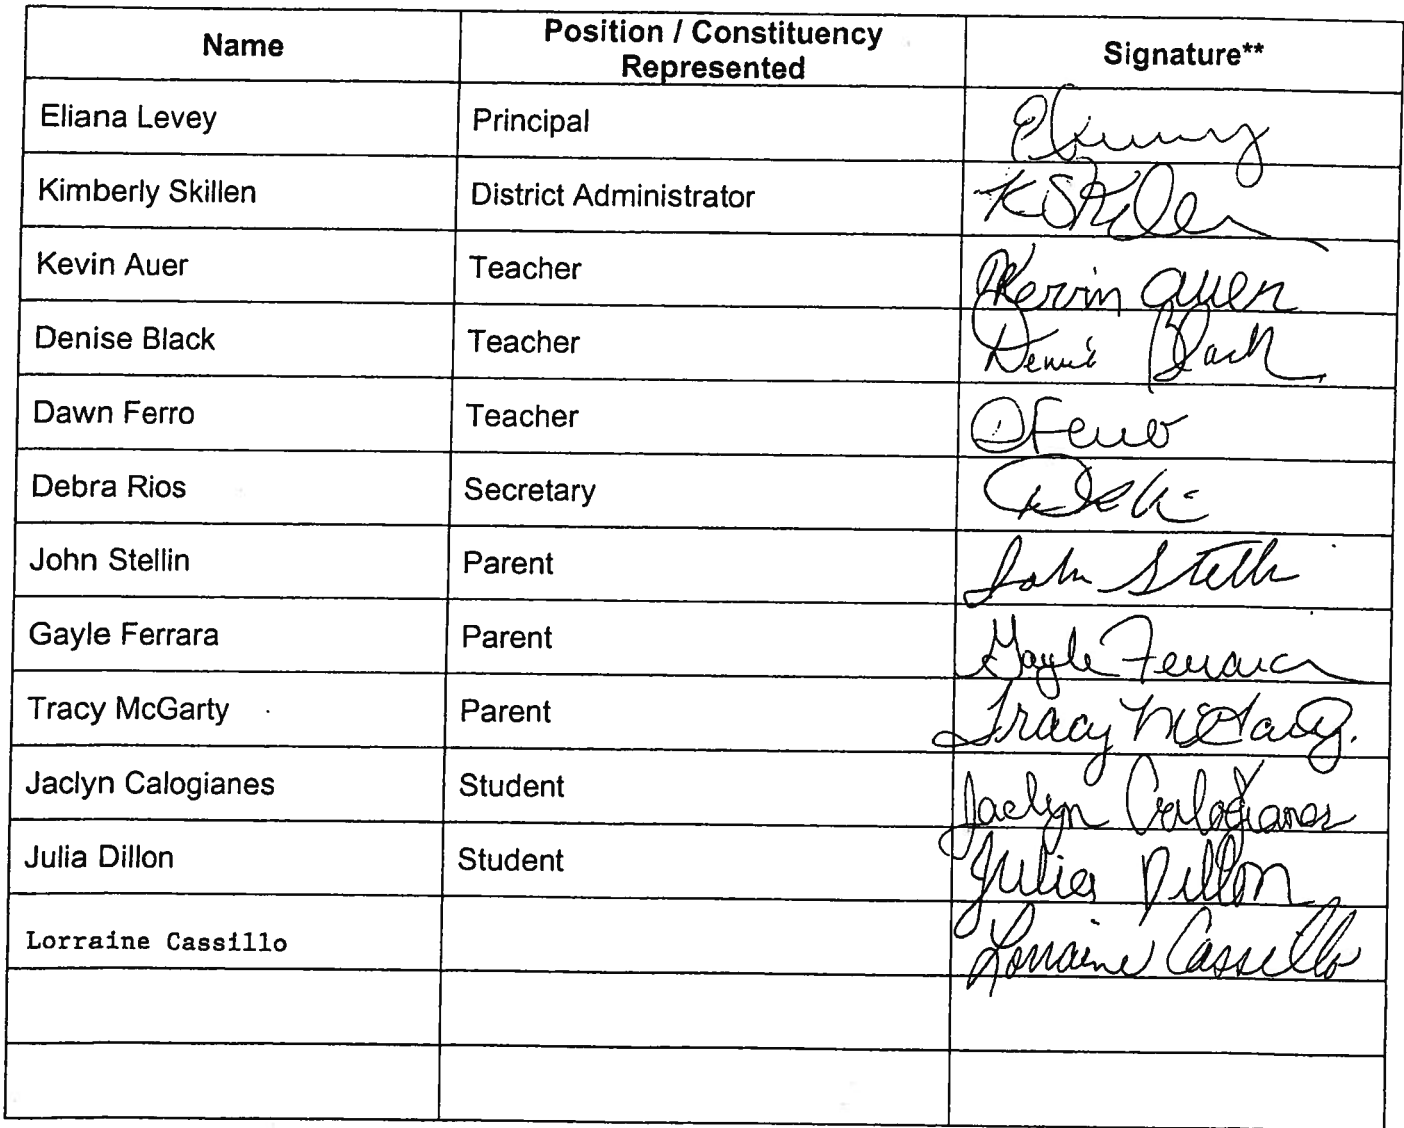 Name
Position / Constituency
Represented
Signature**
Eliana Levey
Principal
Kimberly Skillen
District Administrator
K Skillen
Kevin Auer
Teacher
Kevin Auer
Denise Black
Teacher
Denise Black
Dawn Ferro
Teacher
D Ferro
Debra Rios
Secretary
John Stellin
Parent
John Stellin
Gayle Ferrara
Parent
Gayle Ferrara
Tracy McGarty
Parent
Tracy McGarty
Jaclyn Calogianes
Student
Jaclyn Calogianes
Julia Dillon
Student
Julia Dillon
Lorraine Cassillo
Lorraine Cassillo